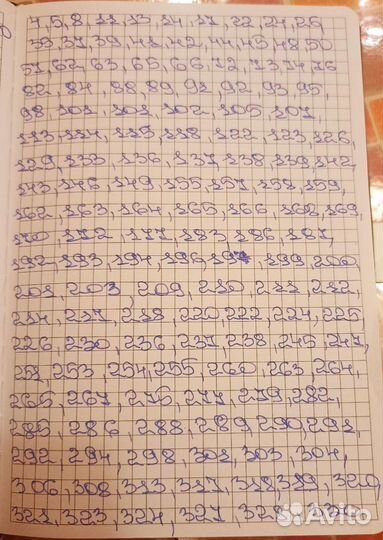 4,5,8,11,13,14,17,22,24,25
33,37,39,41,42,44,45,48,50
51,62,63,65,66,72,73,74,76
82,84,88,89,91,92,93,95,
98,101,101,102,105,107,
113,114,115,118,122,123,126,
129,133,136,137,138,139,142,
143,146,149,155,157,158,159,
162,163,164,165,166,168,169,
170,172,177,183,186,187,
192,193,194,196,197,199,200
201,203,209,210,211,212,
214,217,218,220,222,224,225
226,230,236,237,238,245,247,
251,253,254,255,260,263,264,
265,267,276,277,279,282,
285,286,288,289,290,291,
292,294,298,301,303,304,
306,308,313,317,318,319,320
321,323,324,327,328
Avito